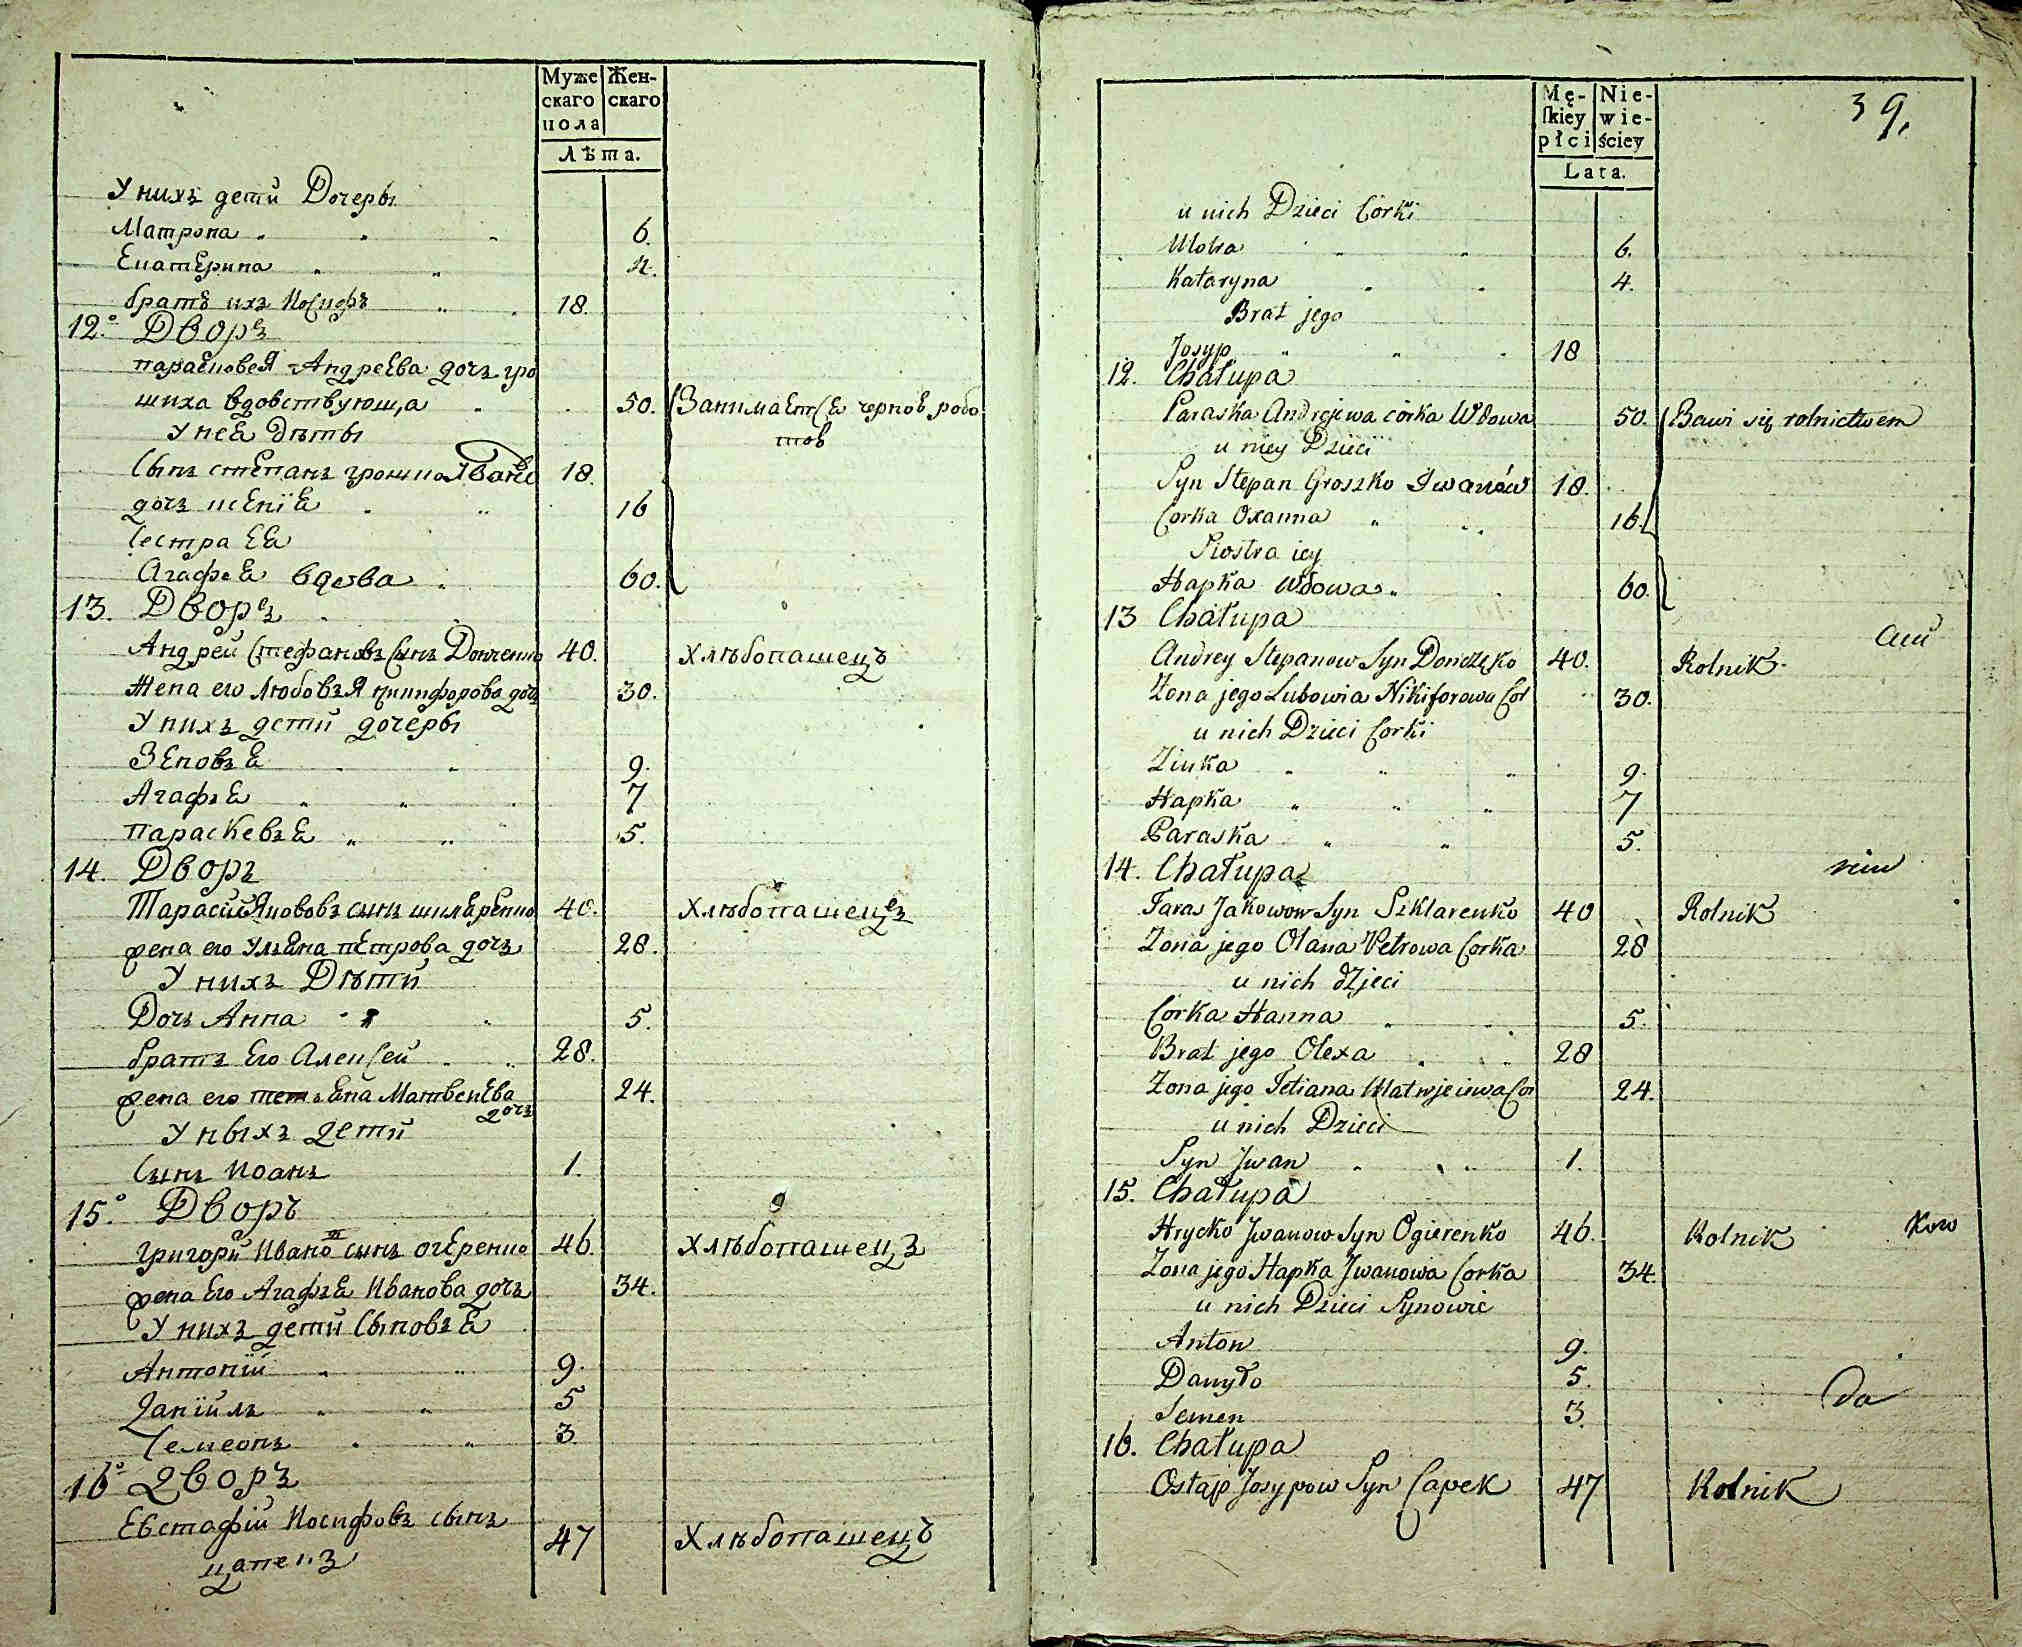 Муже Жен-
скаго скаго
пола
Лѣта.
У нихъ дети Дочеры
Матрона 6.
Екатерина 4.
братъ ихъ Иосифъ 18.
12. Дворъ
парасковея Андреева дочъ гро
шиха вдовствующа 50. Занимается чорнов робо
тов
У нея дѣты
Сынъ степанъ грошко Ивано 18.
дочъ ксения 16
Сестра ея
Агафея вдова 60.
13. Дворъ
Андрей Стефановъ Сынъ Донченко 40. Хлѣбопашецъ
Жена его Любовъя никифорова дочъ 30.
У нихъ дети дочеры
Зеновъя 9.
Агафъя 7
параскевъя 5.
14. Дворъ
Тарасий Якововъ сынъ шкляренко 40. Хлѣбопашецъ
жена его Ульяна петрова дочъ 28.
У нихъ Дѣти
Дочъ Анна 5.
братъ Его Алексей 28.
жена его тетъяна Матвеиева 24.
дочъ
У ныхъ дети
Сынъ Иоанъ 1.
15. Дворъ
григорий Ивано сынъ огеренко 46. Хлѣбопашецъ
жена Его Агафъя Иванова дочъ 34.
У нихъ дети Сыновъя
Антоний 9.
Даниилъ 5
Семеонъ 3
16 Дворъ
Евстафий Иосифовъ сынъ
цапекъ 47 Хлѣбопашецъ
Mę- Nie-
ſkiey wie-
płci ściey
Lata.
39.
u nich Dzieci Córki
Motra 6.
Kataryna 4.
Brat jego
Josyp 18
12. Chałupa
Paraska Andrejewa córka Wdowa 50. Bawi się rolnictwem
u niey Dzieci
Syn Stepan Groszko Iwanów 18.
Corka Oxanna 16.
Siostra iey
Hapka Wdowa 60.
13 Chałupa
Andrey Stepanow Syn Donczęko 40. Rolnik
Zona jego Lubowia Nikiforowa Cor 30.
u nich Dzieci Corki
Zinka 9.
Hapka 7
Paraska 5.
14. Chałupa
Taras Jakowow Syn Szklarenko 40 Rolnik
Zona jego Olana Petrowa Corka 28
u nich dzjeci
Corka Hanna 5.
Brat jego Olexa 28
Zona jego Tetiana Matwjeiewa Cor 24.
u nich Dzieci
Syn Jwan 1.
15. Chałupa
Hrycko Jwanow Syn Ogierenko 46. Rolnik
Zona jego Hapka Jwanowa Corka 34.
u nich Dzieci Synowie
Anton 9.
Danyło 5.
Semen 3.
da
16. Chałupa
Ostap Josypow Syn Capek 47 Rolnik